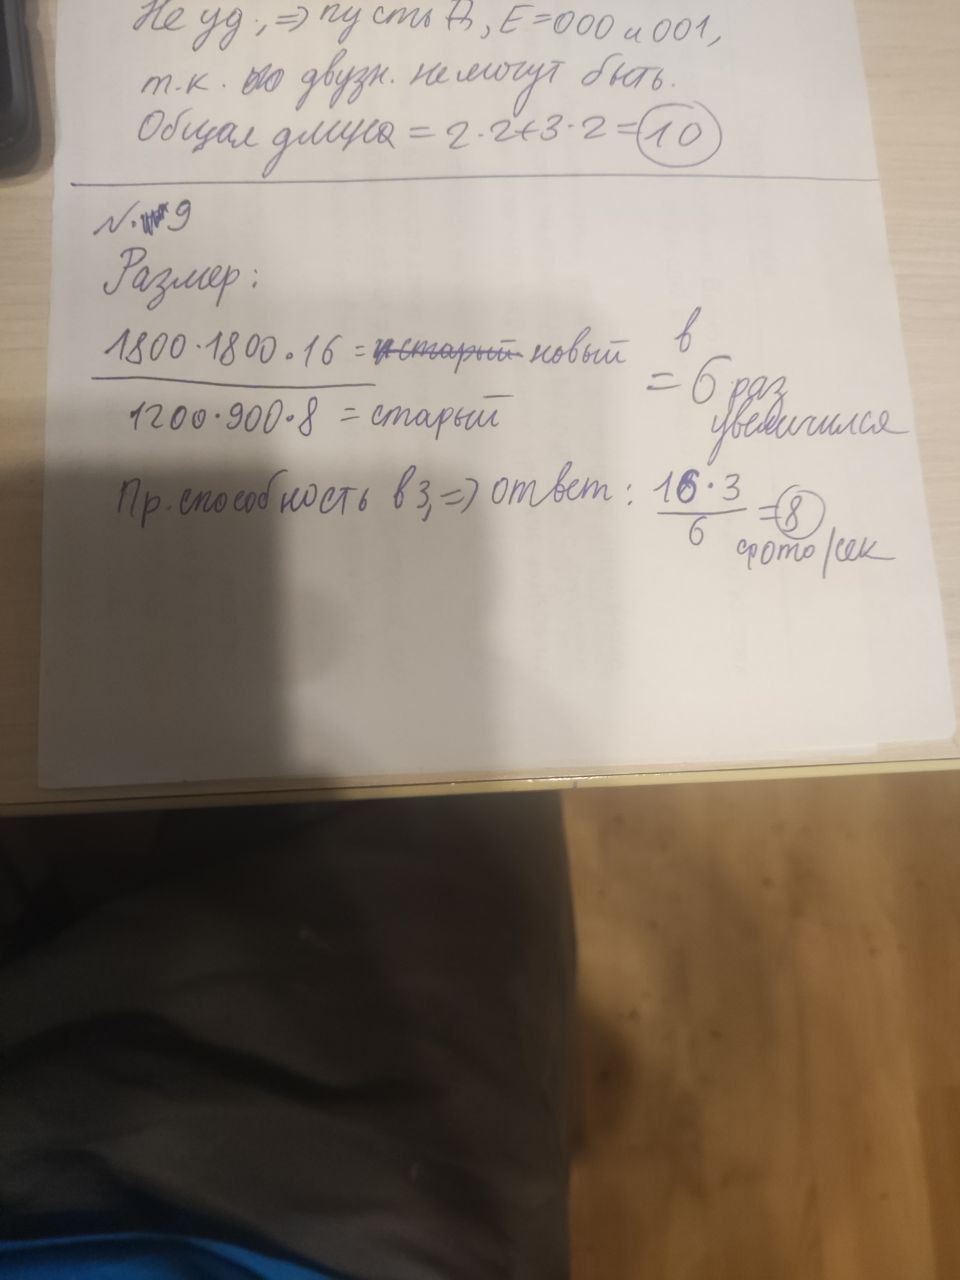 Не уд., ⇒ пусть Д, Е = 000 и 001,
т.к. двузн. не могут быть.
Общая длина = 2·2+3·2 = 10
N. 9
Размер:
1800·1800·16 = старый новый
1200·900·8 = старый
= в 6 раз
увеличился
Пр. способность в 3, ⇒ ответ: 16·3 / 6 = 8
фото/сек